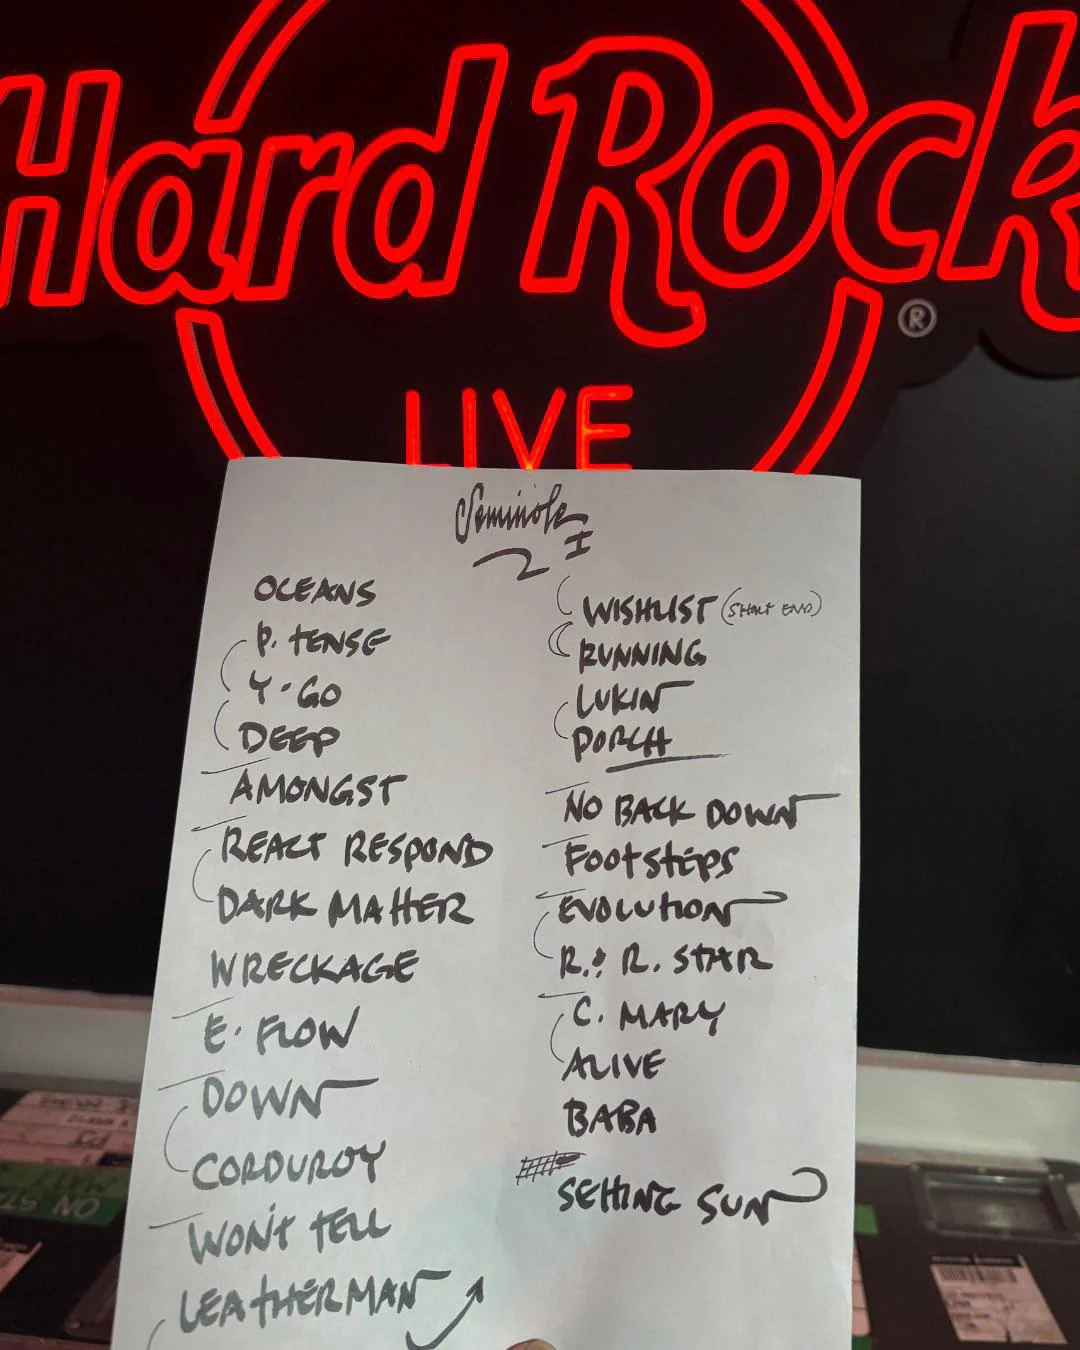 Hard Rock
®
LIVE
Seminole
I
OCEANS
P. TENSE
Y. GO
DEEP
AMONGST
REACT RESPOND
DARK MATTER
WRECKAGE
E. FLOW
DOWN
CORDUROY
WON'T TELL
LEATHERMAN
WISHLIST (SHORT END)
RUNNING
LUKIN
PORCH
NO BACK DOWN
FOOTSTEPS
EVOLUTION
R. & R. STAR
C. MARY
ALIVE
BABA
SETTING SUN